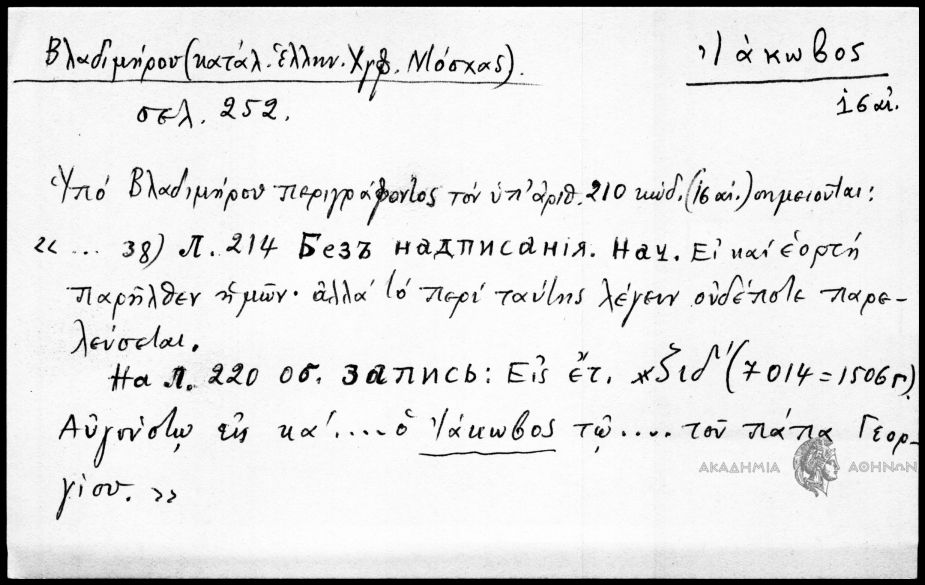 Βλαδιμήρου (κατάλ. Ἑλλην. Χγφ. Μόσχας). Ἰάκωβος
σελ. 252. 16 αἰ.
Ὑπό Βλαδιμήρου περιγράφοντος τόν ὑπ' ἀριθ. 210 κώδ. (16 αἰ.) σημειοῦται:
«... 38) Л. 214 Безъ надписанія. Нач. Εἰ καί ἑορτή
παρῆλθεν ἡμῶν· ἀλλά τό περί ταύτης λέγειν οὐδέποτε παρε-
λεύσεται.
На л. 220 об. запись: Εἰς ἔτ. ͵ζιδ' (7014 = 1506 г.)
Αὐγούστῳ εἰς κα'.... ὁ Ἰάκωβος τῷ .... τοῦ πάπα Γεορ-
γίου. »
ΑΚΑΔΗΜΙΑ ΑΘΗΝΩΝ